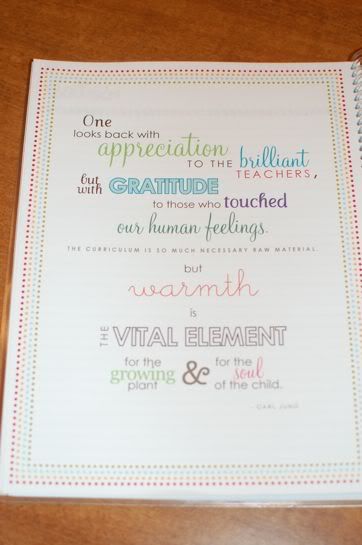 One
looks back with
appreciation
TO THE brilliant
TEACHERS,
but with GRATITUDE
to those who touched
our human feelings.
THE CURRICULUM IS SO MUCH NECESSARY RAW MATERIAL.
but
warmth
is
THE VITAL ELEMENT
for the growing plant & for the soul of the child.
- CARL JUNG